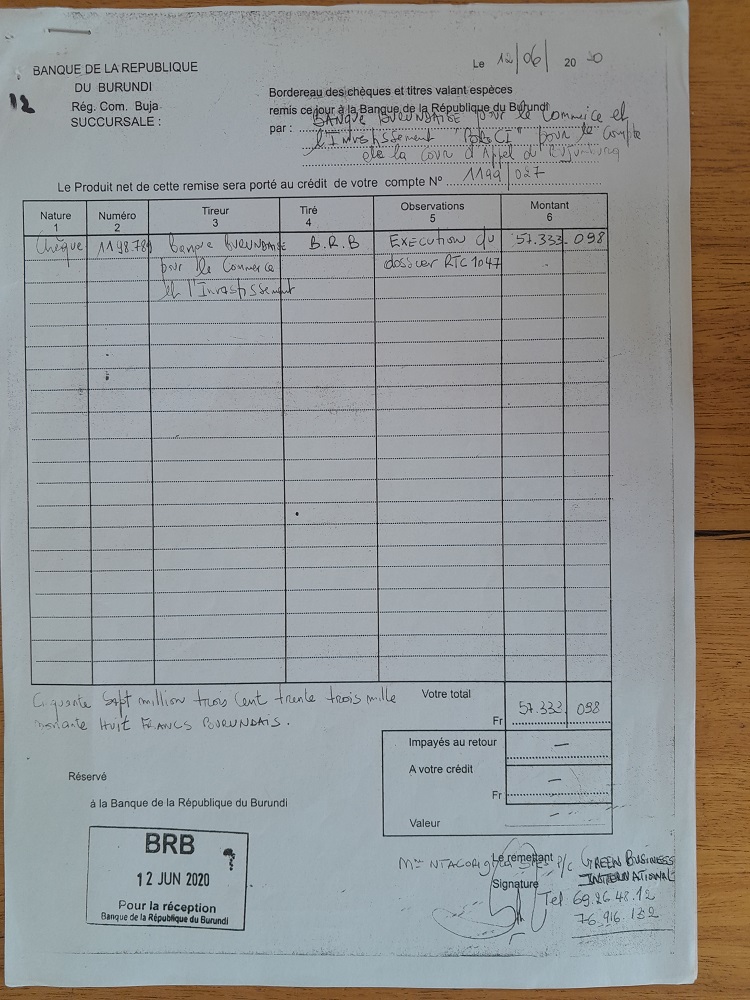 Le 12/06/ 20 20
BANQUE DE LA REPUBLIQUE
DU BURUNDI
Rég. Com. Buja
SUCCURSALE :
12
Bordereau des chèques et titres valant espèces
remis ce jour à la Banque de la République du Burundi
par : BANQUE BURUNDAISE pour le Commerce et
l'Investissement pour le Compte
de la Cour d'Appel de Bujumbura
Le Produit net de cette remise sera porté au crédit de votre compte N° 1199/027
Nature Numéro Tireur Tiré Observations Montant
1 2 3 4 5 6
Chèque Banque BURUNDAISE B.R.B EXECUTION du 57.333.098
pour le Commerce dossier RTC 1047
et l'Investissement
Ciquente Sept million trois Cent trente trois mille
HUIT FRANCS BURUNDAIS.
Votre total
Fr 57.333 098
Impayés au retour —
A votre crédit —
Fr
Valeur
Réservé
à la Banque de la République du Burundi
BRB
12 JUN 2020
Pour la réception
Banque de la République du Burundi
Le remettant
P/C GREEN BUSINESS
INTERNATIONAL
Signature
Tel 69.26.48.12
76.916.132